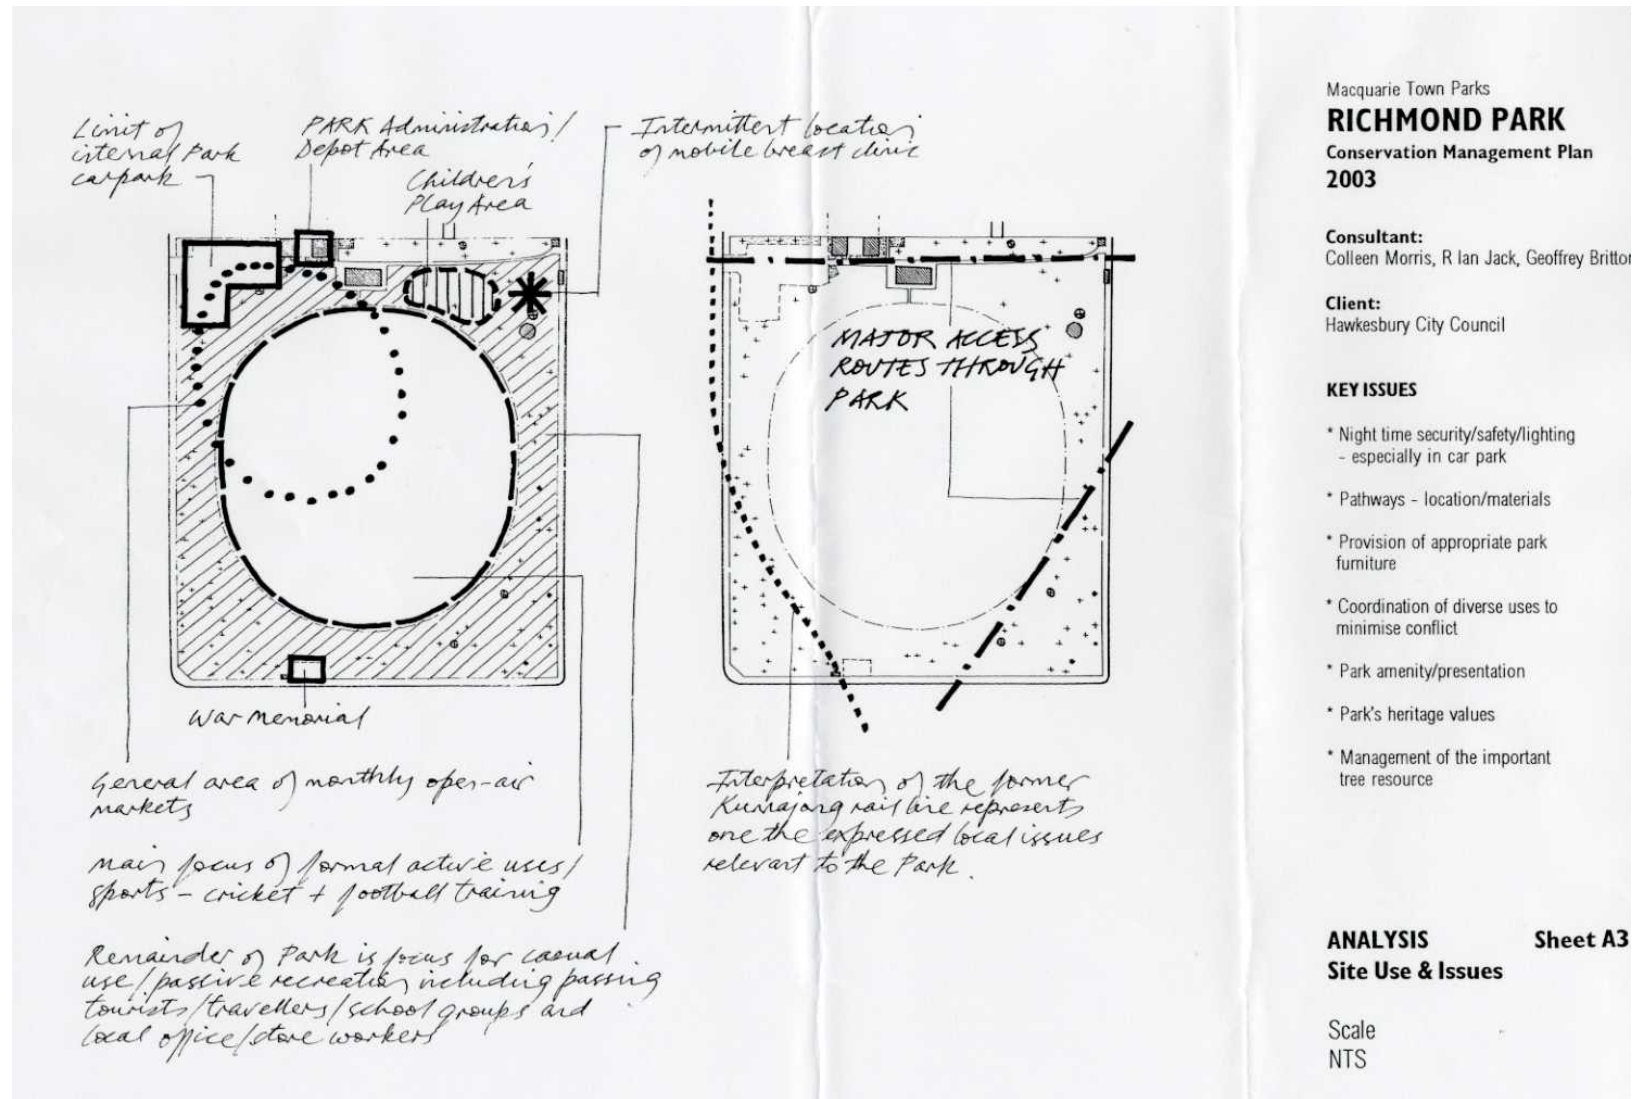 Limit of
internal Park
carpark
PARK Administration/
Depot Area
Children's
Play Area
Intermittent location
of mobile breast clinic
War Memorial
General area of monthly open-air
markets
Main focus of formal active uses/
sports - cricket + football training
Remainder of Park is focus for casual
use/passive recreation including passing
tourists/travellers/school groups and
local office/store workers
MAJOR ACCESS
ROUTES THROUGH
PARK
Interpretation of the former
Kurrajong rail line represents
one the expressed local issues
relevant to the Park.
Macquarie Town Parks
RICHMOND PARK
Conservation Management Plan
2003
Consultant:
Colleen Morris, R Ian Jack, Geoffrey Britton
Client:
Hawkesbury City Council
KEY ISSUES
* Night time security/safety/lighting
- especially in car park
* Pathways - location/materials
* Provision of appropriate park
furniture
* Coordination of diverse uses to
minimise conflict
* Park amenity/presentation
* Park's heritage values
* Management of the important
tree resource
ANALYSIS Sheet A3
Site Use & Issues
Scale
NTS